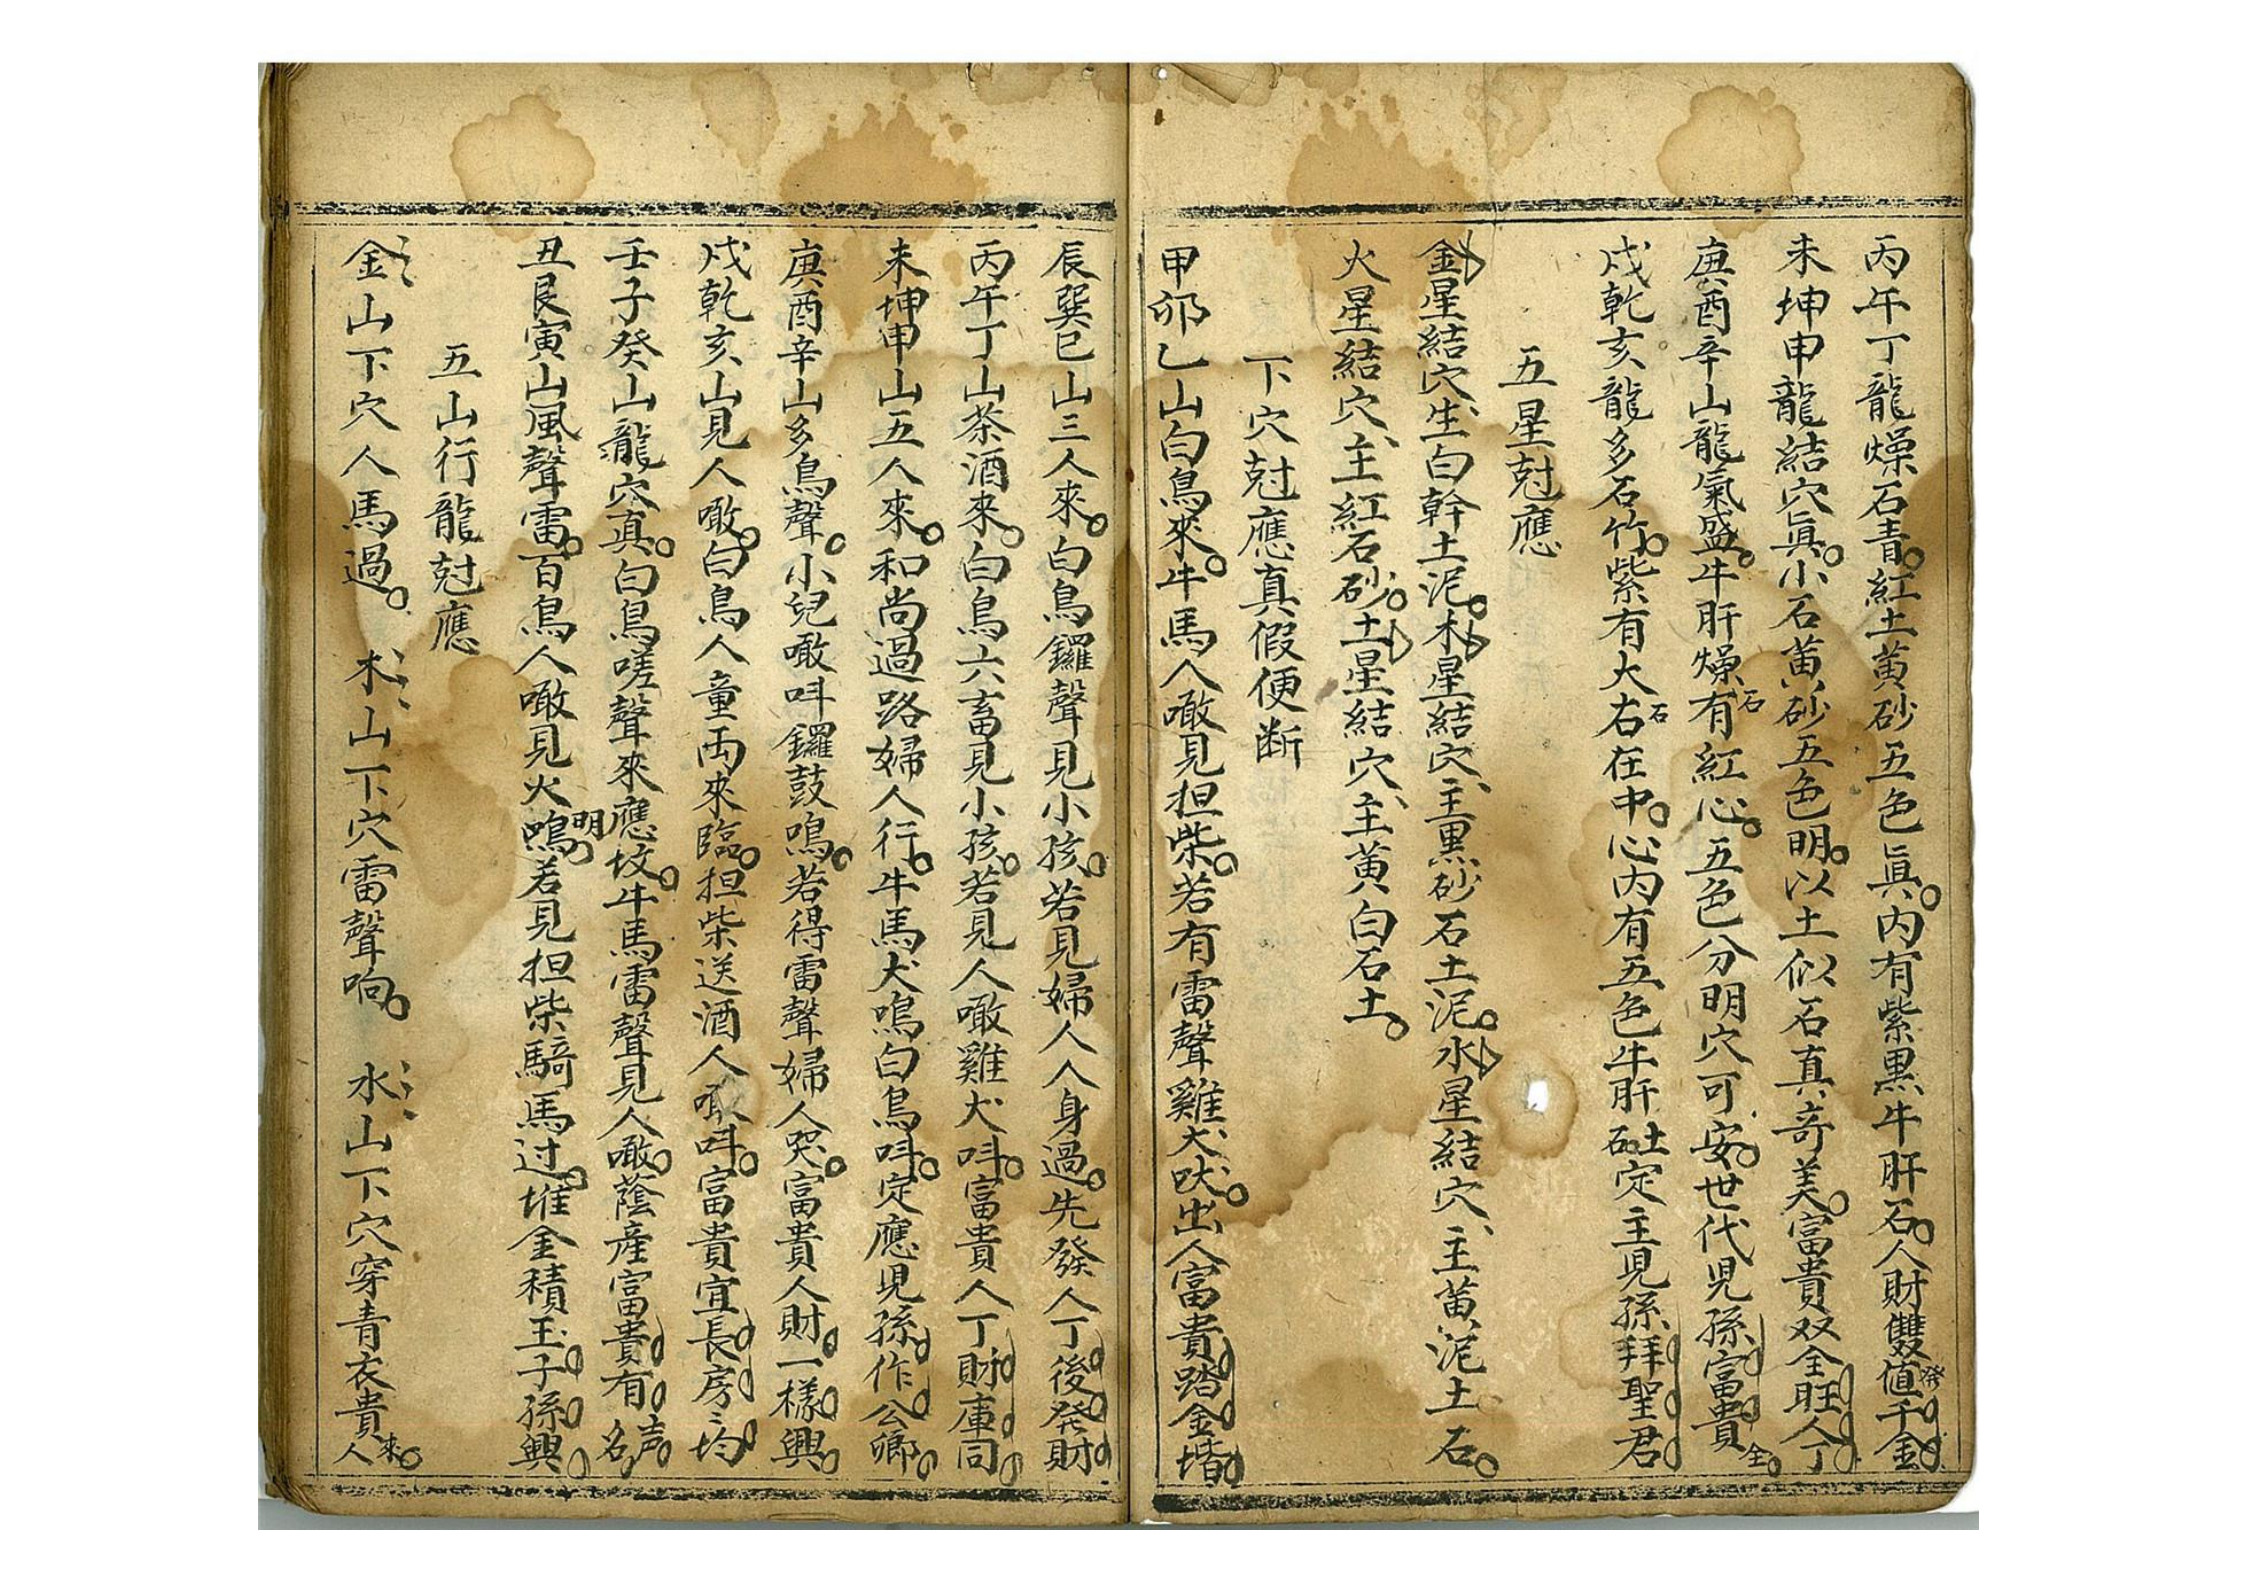 丙午丁龍燥石青。紅土黄砂五色眞。内有紫黒牛肝石。人財雙發值千金
未坤申龍結穴眞。小石黄砂五色明。以土似石真奇美。富貴双全旺人丁
庚酉辛山龍氣盛。牛肝燥石有紅心。五色分明穴可安。世代児孫富貴全。
戌乾亥龍多石竹。紫有大右石在中。心内有五色牛肝石土定主児孫拜聖君
五星尅應
金星結穴、生白幹土泥。木星結穴、主黒砂石土泥。水星結穴、主黄泥土石。
火星結穴、主紅石砂。土星結穴、主黄白石土。
下穴尅應真假便断
甲卯乙山白鳥來。牛馬人噉見担柴。若有雷聲雞犬吠。出人富貴踏金堦
辰巽巳山三人來。白鳥鑼聲見小孩。若見婦人人身過。先發人丁後発財
丙午丁山茶酒來。白鳥六畜見小孩。若見人噉雞犬呌。富貴人丁財庫同
未坤申山五人來。和尚過路婦人行。牛馬犬鳴白鳥呌。定應児孫作公卿
庚酉辛山多鳥聲。小兒噉呌鑼鼓鳴。若得雷聲婦人哭。富貴人財一樣興
戌乾亥山見人噉。白鳥人童両來臨。担柴送酒人噉呌。富貴宜長房〻均
壬子癸山龍穴真。白鳥嗟聲來應坟。牛馬雷聲見人噉。蔭産富貴有名声
丑艮寅山風聲雷。百鳥人噉見火鳴明。若見担柴騎馬过。堆金積玉子孫興
五山行龍尅應
金山下穴人馬過。 木山下穴雷聲响。 水山下穴穿青衣貴人來。